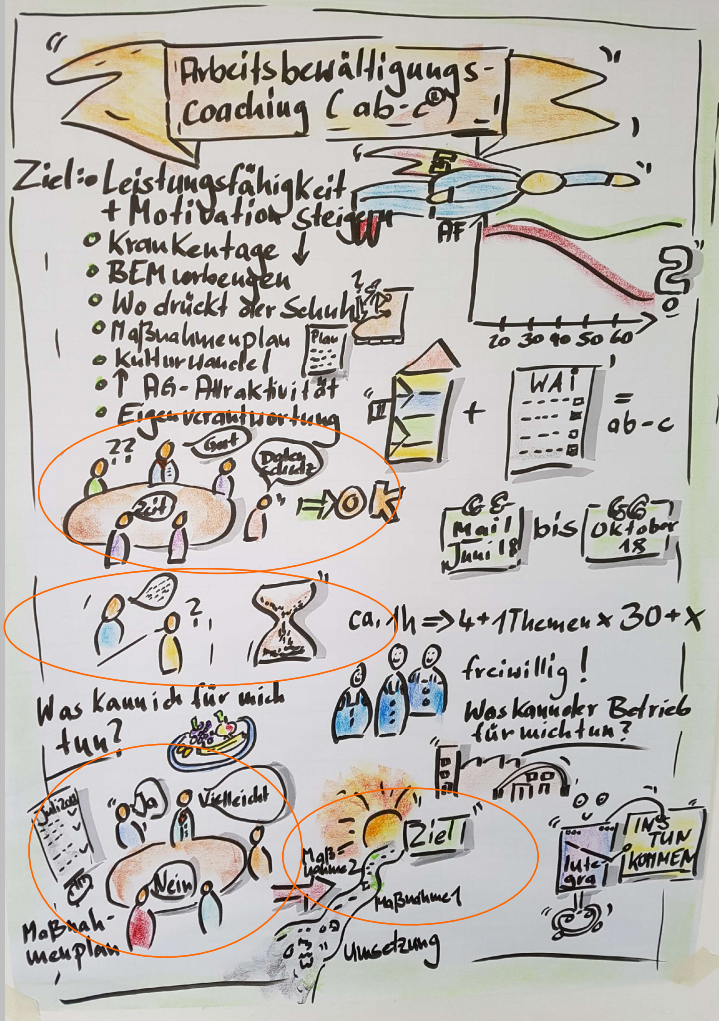 Arbeitsbewältigungs-
Coaching (ab-c®) !
Ziel: • Leistungsfähigkeit
+ Motivation steigern
• Krankentage ↓
• BEM vorbeugen
• Wo drückt der Schuh
• Maßnahmenplan
Plan
• Kulturwandel
• ↑ AG-Attraktivität
• Eigenverantwortung
AF
20 30 40 50 60
?
+
WAi
=
ab-c
??
Gert
Daten
schutz
Zeit
=> OK
Mai/
Juni 18
bis
Oktober
18
?
ca. 1h => 4+1 Themen x 30 + x
freiwillig!
Was kann ich für mich
tun?
Was kann der Betrieb
für mich tun?
Ja
Vielleicht
Nein
Maßnah-
menplan
Maß=
nahme 2
Ziel!
Maßnahme 1
Umsetzung
Inte
gra
INS
TUN
KOMMEN